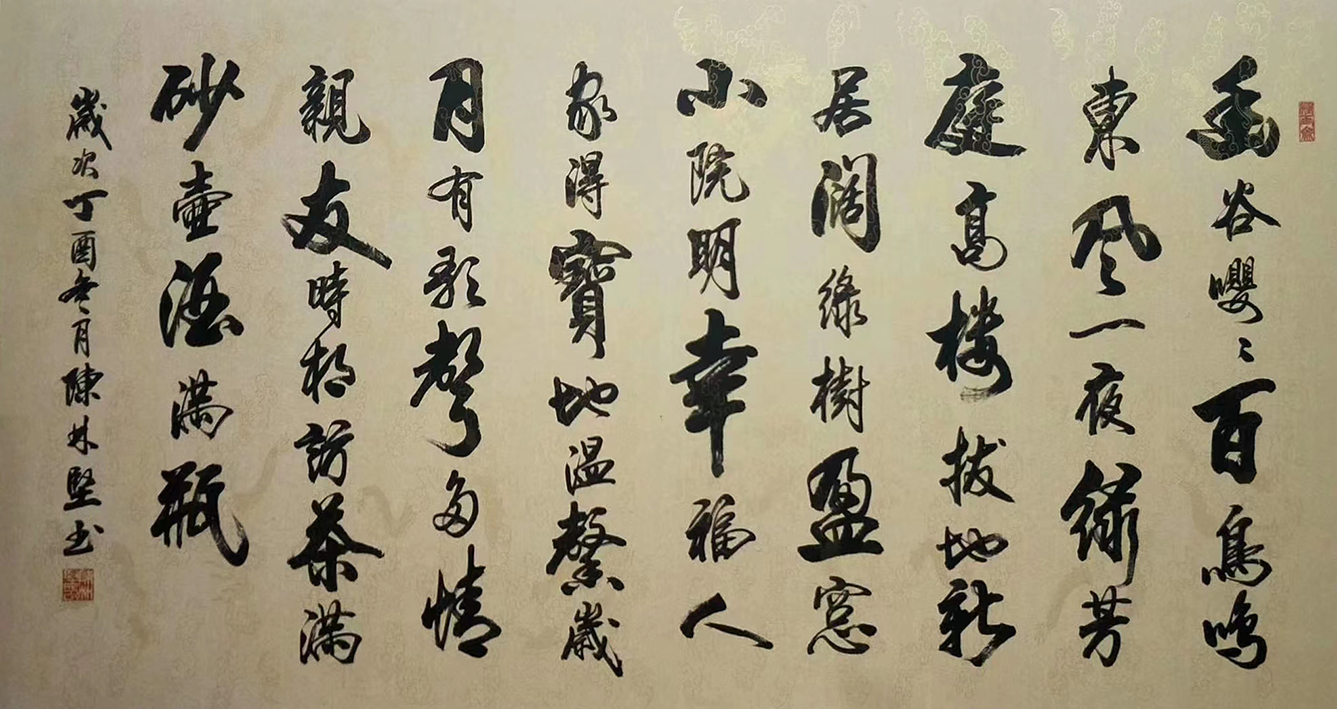 幽谷嚶〻百鳥鳴
東风一夜绿芳
庭高楼拔地新
居阔绿樹盈窓
小院明幸福人
家得寶地温馨歲
月有歌聲多情
親友時相訪茶满
砂壺酒满瓶
歲次丁酉冬月陳林堅书